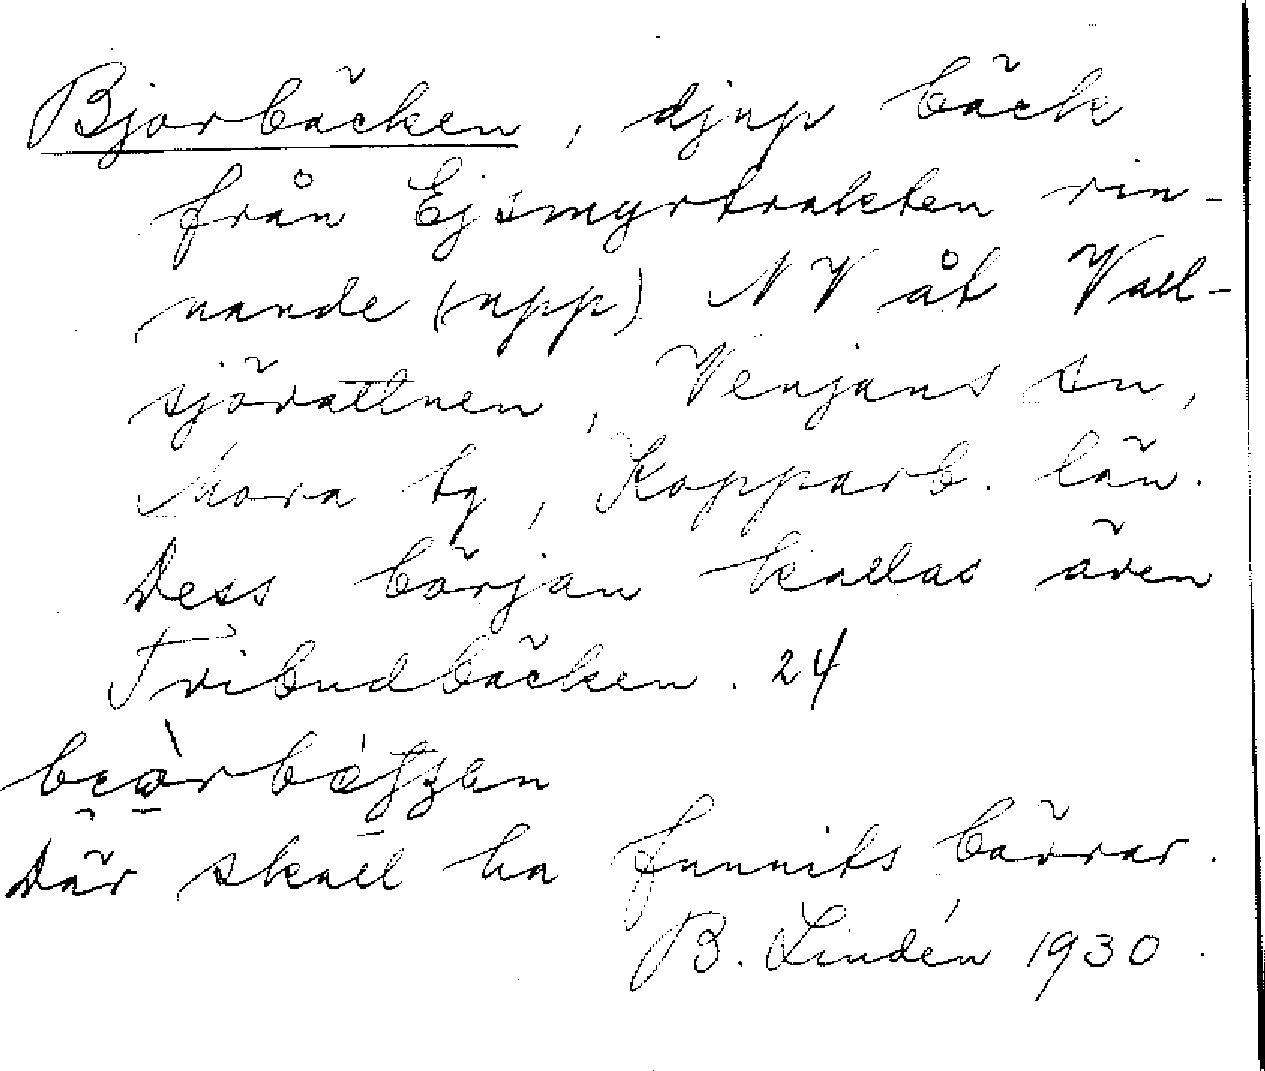 Bjorbäcken, djup bäck
från Ejsmyrtrakten rin-
nande (upp) NV åt Vall-
sjörattnen, Venjans sn,
Mora tg, Kopparb. län.
Dess början kallas även
Tribudbäcken. 24
Där skall ha funnits bävrar.
B. Lindén 1930.